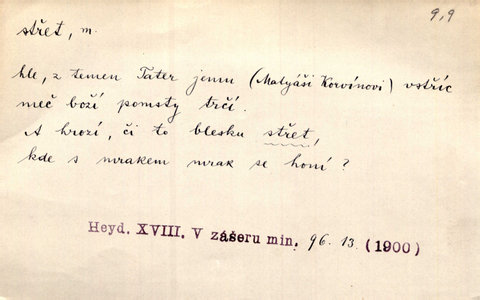 9,9
střet, m.
hle, z temen Tater jemu (Matyáši Korvínovi) vstříc
meč boží pomsty trčí.
A hrozí, či to blesku střet,
kde s mrakem mrak se honí?
Heyd. XVIII. V zášeru min. 96. 13. (1900)